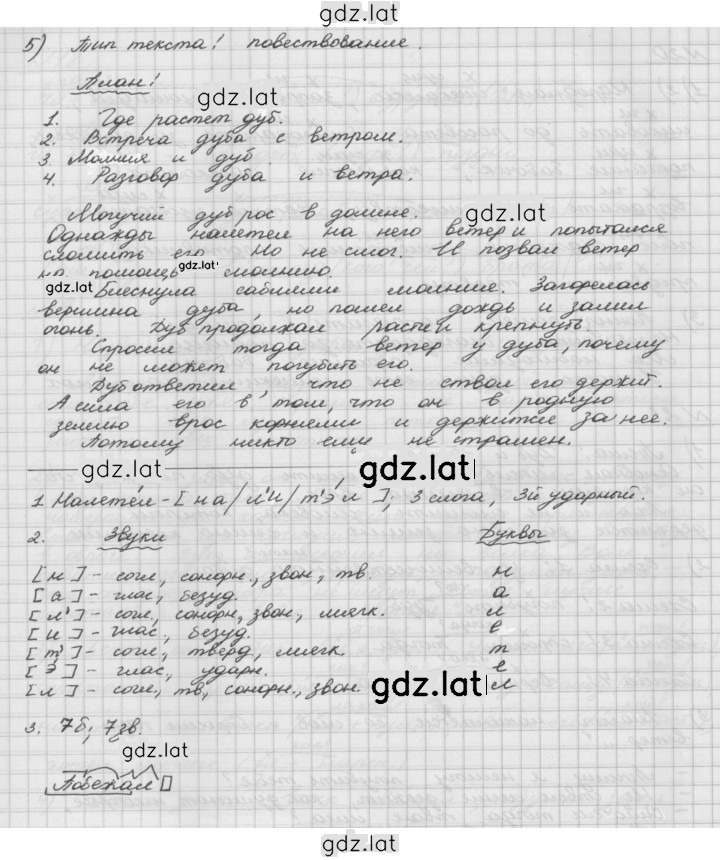 gdz.lat
5) Тип текста: повествование.
План:
gdz.lat
1. Где растет дуб.
2. Встреча дуба с ветром.
3. Молния и дуб
4. Разговор дуба и ветра.
Могучий дуб рос в долине. gdz.lat
Однажды налетел на него ветер и попытался
сломить его. Но не смог. И позвал ветер
на помощь gdz.lat молнию.
gdz.lat Блеснула саблями молние. Загорелась
вершина дуба, но пошел дождь и залил
огонь. Дуб продолжал расти и крепнуть.
Спросил тогда ветер у дуба, почему
он не может погубить его.
Дуб ответил что не ствол его держит.
А сила его в том, что он в родную
землю врос корнями и держится за нее.
Потому никто ему не страшен.
gdz.lat gdz.lat
1 Налетел - [на/л'и/т'эл]; 3 слога, 3й ударный.
2. Звуки Буквы
[н] - согл, сонорн., звон., тв. н
[а] - глас, безуд. а
[л'] - согл., сонорн, звон, мягк. л
[и] - глас, безуд. е
[т'] - согл, тверд, мягк. т
[э] - глас, ударн. е
[л] - согл, тв, сонорн., звон gdz.lat л
3. 7б; 7зв.
gdz.lat
Побежал
gdz.lat